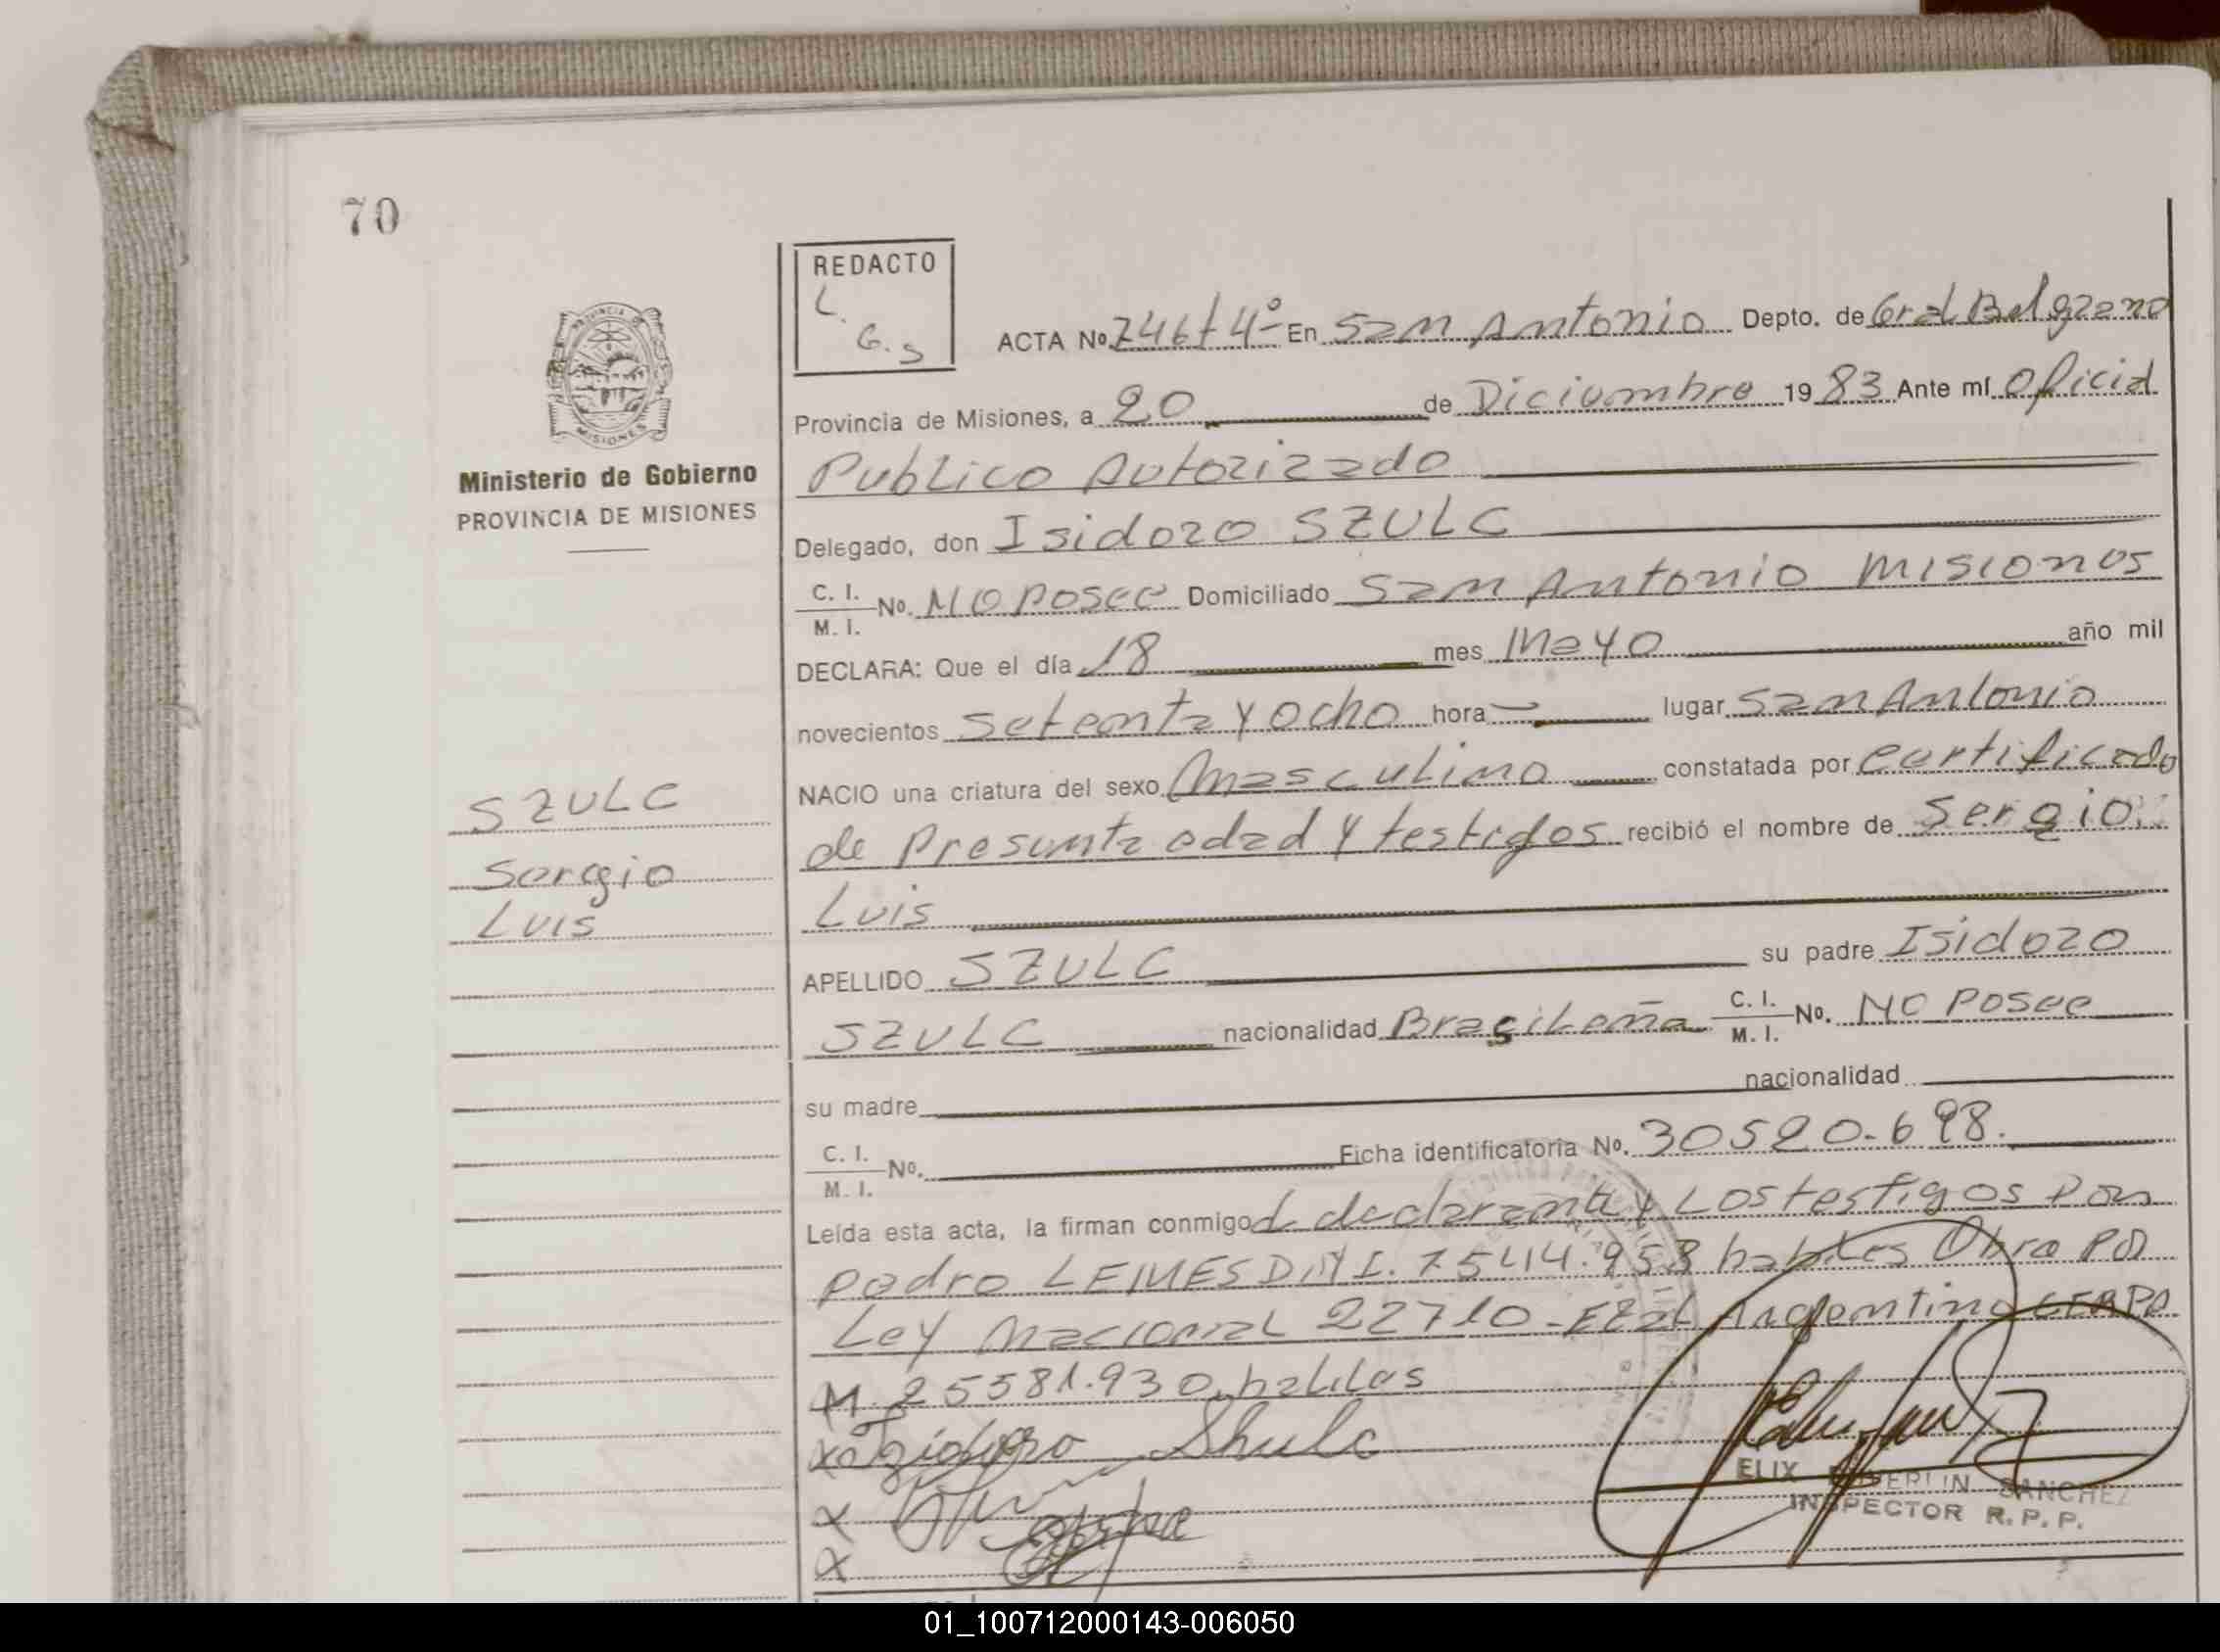 70
REDACTO
L.
G. S
ACTA No. 746 t 4º En San Antonio Depto. de Gral Belgrano
Provincia de Misiones, a 20 de Diciembre 1983 Ante mí Oficial
Publico Autorizado
Ministerio de Gobierno
PROVINCIA DE MISIONES
Delegado, don Isidoro SZULC
C. I.
M. I. No. NO Posee Domiciliado San Antonio Misiones
DECLARA: Que el día 18 mes Mayo año mil
novecientos setenta y ocho hora lugar San Antonio
NACIO una criatura del sexo Masculino constatada por certificado
de Presunta edad y testigos recibió el nombre de Sergio
Luis
SZULC
Sergio
Luis
APELLIDO SZULC su padre Isidoro
SZULC nacionalidad Brasileña C. I.
M. I. No. NO Posee
su madre nacionalidad
C. I.
M. I. No. Ficha identificatoria No. 30520-698.
Leída esta acta, la firman conmigo el declarante y Los testigos Don
Pedro LEMES D.N I. 7.5414.958 habiles Obra Por
Ley Nacional 22710- Argentino
M. 25581.930 habiles
Shulc
SANCHEZ
INSPECTOR R. P. P.
PROVINCIA DE
MISIONES
01_100712000143-006050